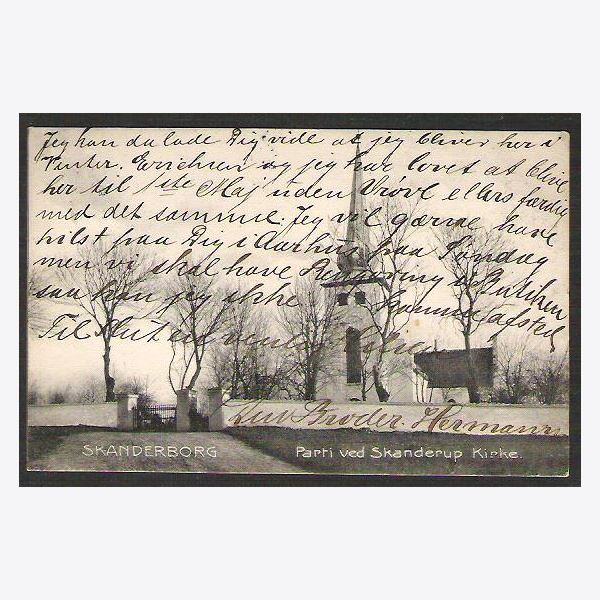 Jeg kan da lade Dig vide at jeg bliver her i
Vinter. Erichsen og jeg har lovet at blive
her til 1ste Maj uden Vrøvl ellers færdig
med det samme. Jeg vil gærne have
hilst paa Dig i Aarhus paa Søndag
men vi skal have Rengøring i Butikken
saa kan jeg ikke komme afsted
Til Slut en venlig Hilsen
din Broder. Hermann
SKANDERBORG Parti ved Skanderup Kirke.